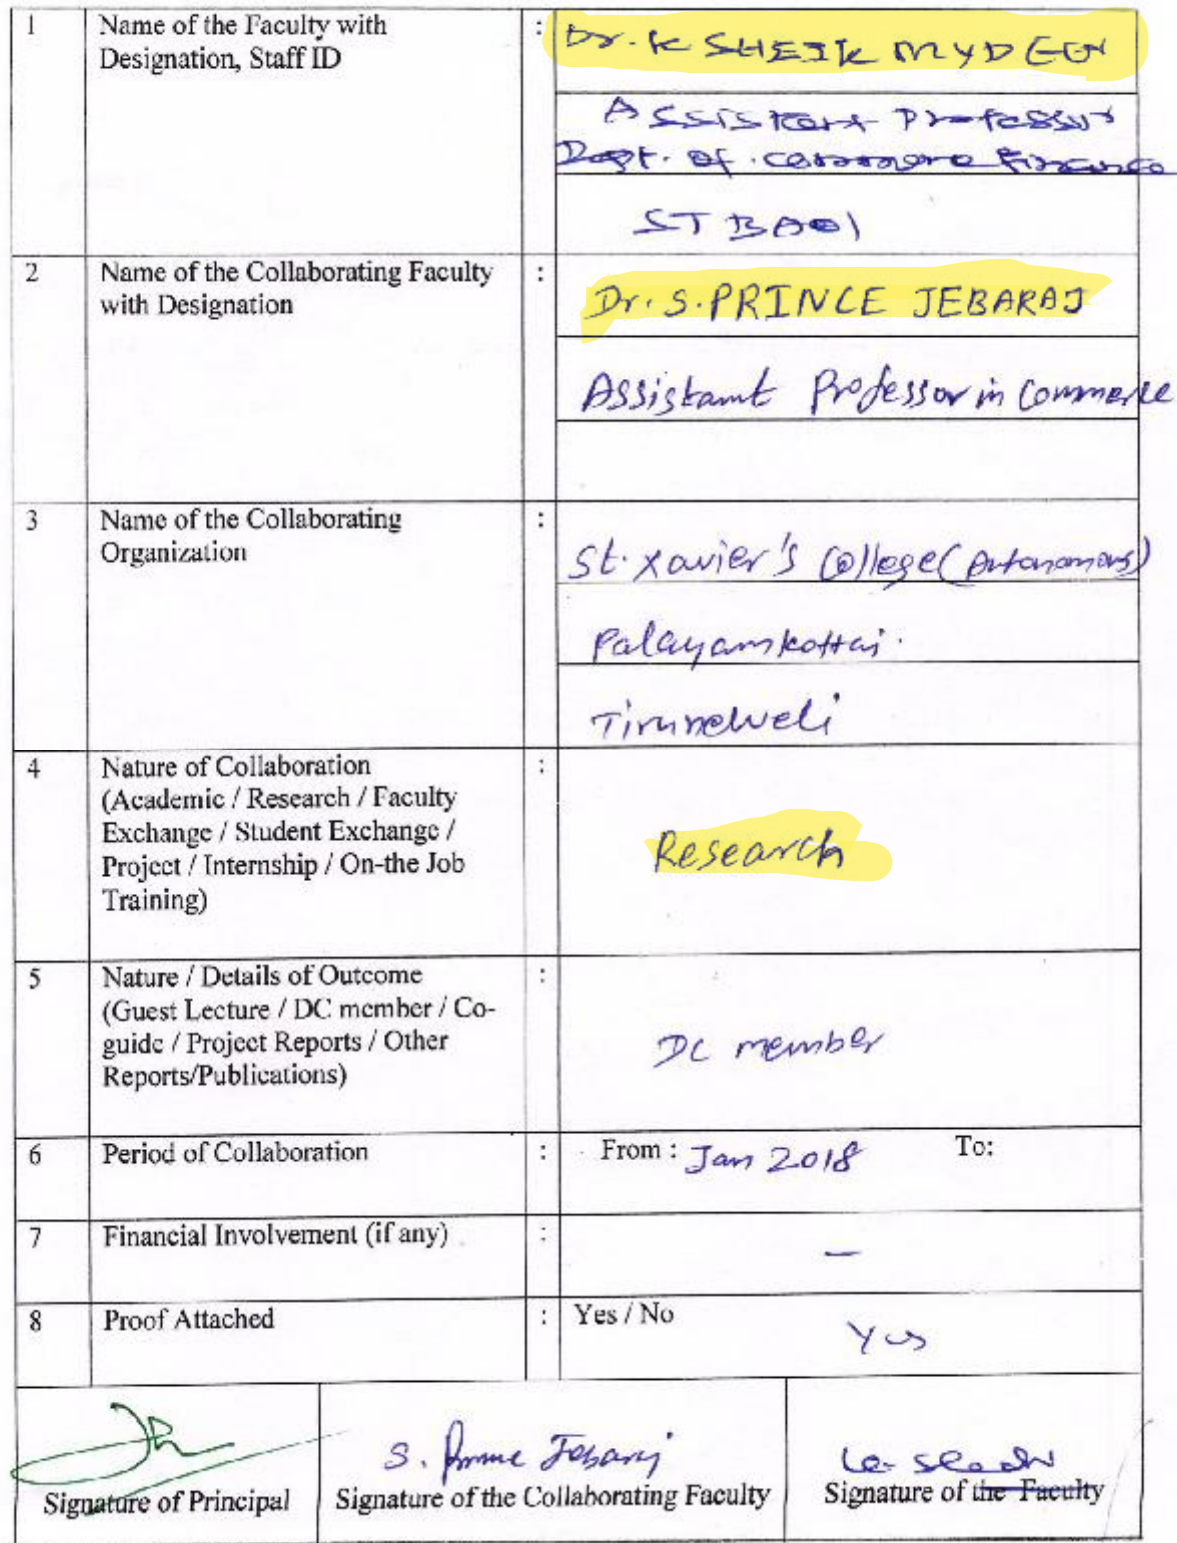 1 Name of the Faculty with : Dr. K SHEIK MYDEEN
Designation, Staff ID
Assistant Professor
Dept. of Commerce Finance
2 Name of the Collaborating Faculty : Dr. S. PRINCE JEBARAJ
with Designation
Assistant Professor in Commerce
3 Name of the Collaborating :
Organization
St. Xavier's College (Autonomous)
Palayamkottai.
Tirunelveli
4 Nature of Collaboration :
(Academic / Research / Faculty
Exchange / Student Exchange /
Project / Internship / On-the Job
Training)
Research
5 Nature / Details of Outcome :
(Guest Lecture / DC member / Co-
guide / Project Reports / Other
Reports/Publications)
DC member
6 Period of Collaboration : From : Jan 2018 To:
7 Financial Involvement (if any) : —
8 Proof Attached : Yes / No Yes
S. Prince Jebaraj
Signature of Principal Signature of the Collaborating Faculty Signature of the Faculty